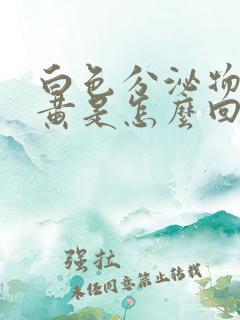 白色分泌物
黄是怎麼回
强拉
未经同意禁止转载